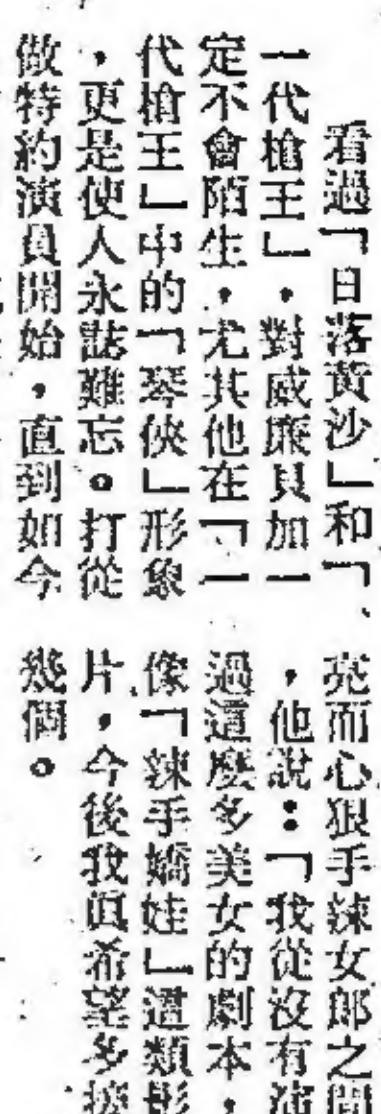 看過「日落黃沙」和「
一代槍王」,對威廉貝加一
定不會陌生,尤其他在「一
代槍王」中的「琴俠」形象
,更是使人永誌難忘。打從
做特約演員開始,直到如今
亮而心狠手辣女郎之間
,他說:「我從沒有演
過這麼多美女的劇本,
像「辣手嬌娃」這類影
片,今後我眞希望多接
幾個。